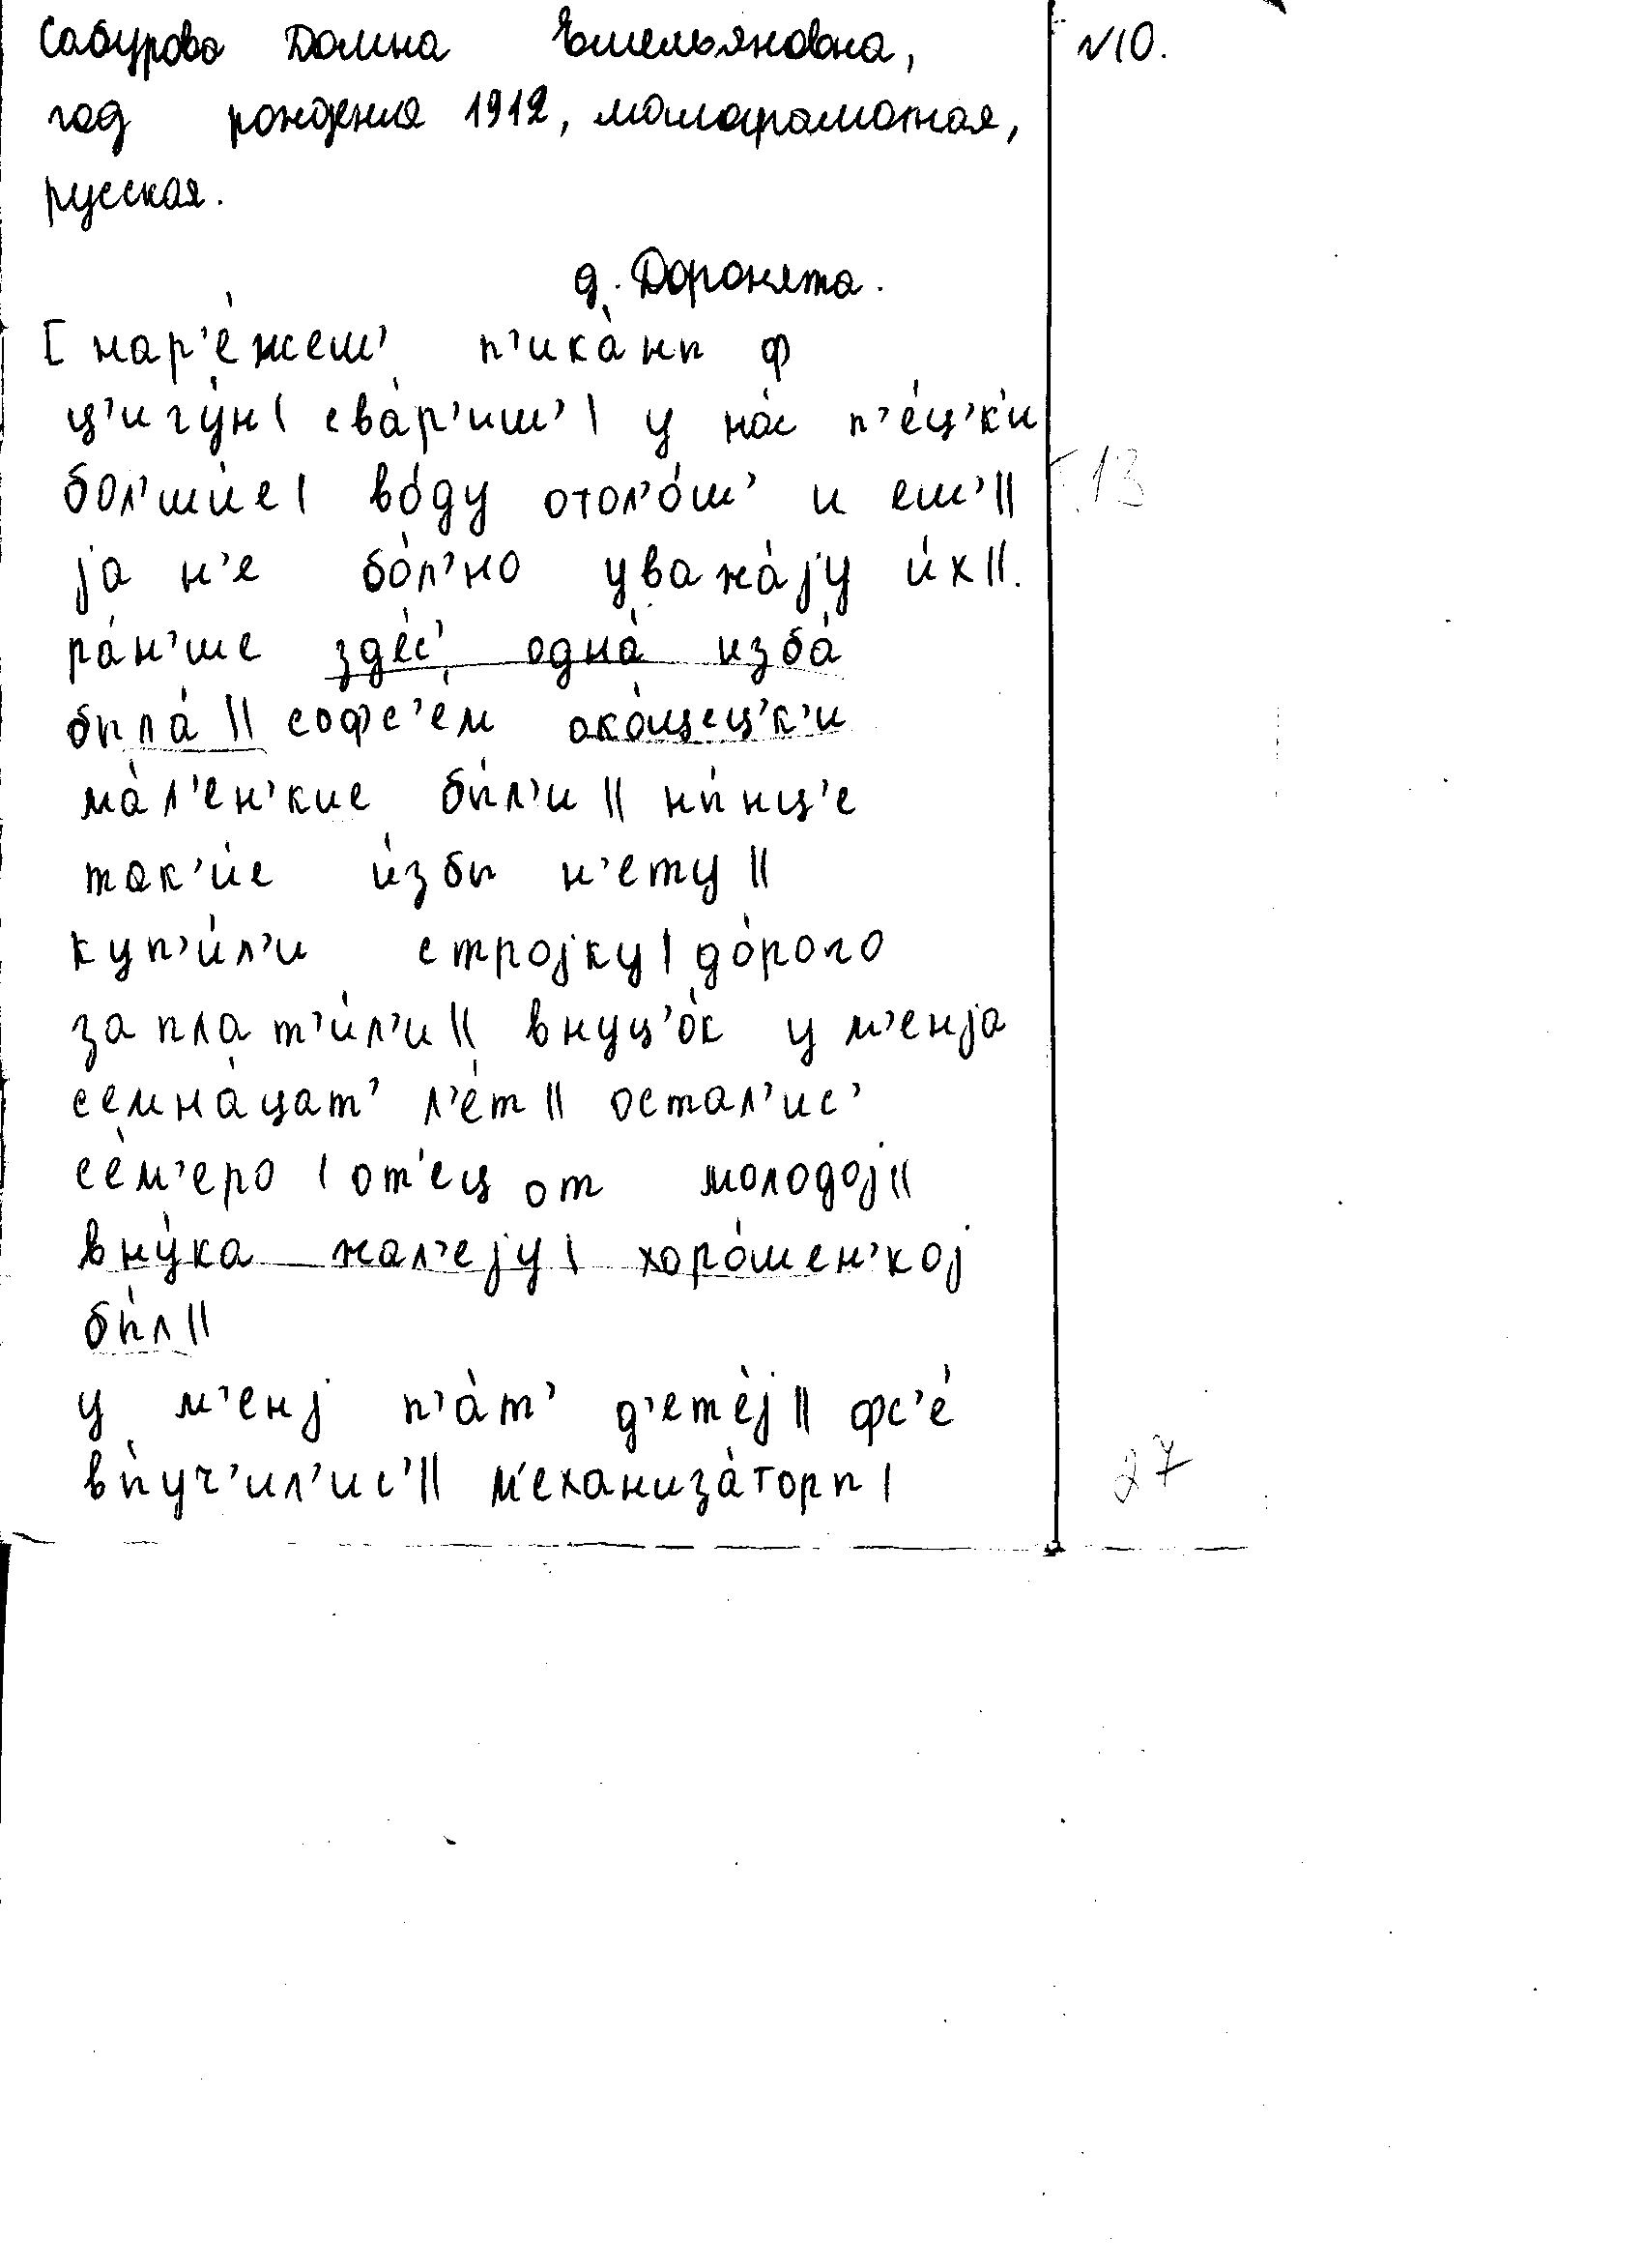 Сабурова Домна Емельяновна, №10.
год рождения 1912, малограмотная,
русская.
д. Доронята.
[ нар’е́жеш’ п’ика́нп ф
ц’игу́н| сва́р’иш’| у на́с п’е́ц’к’и
бол’ши́е| во́ду отол’о́ш’ и еш’||
13
jа н’е бо́л’но уважа́jу и́х||.
ра́н’ше здес’ одна́ изба́
бпла́|| софс’е́м око́шец’к’и
ма́л’ен’кие бп́л’и|| нп́нц’е
так’и́е и́збп н’ету||
куп’и́л’и строjку| до́рого
заплат’и́л’и|| внуц’о́к у м’енjа
семна́цат’ л’е́т|| остал’ис’
се́м’еро| от’ец от молодоj||
вну́ка жал’еjу| хоро́шен’коj
бп́л||
у м’енj п’а́т’ д’ете́j|| фс’е́
вп́уч’ил’ис’|| м’еханиза́торп|
27